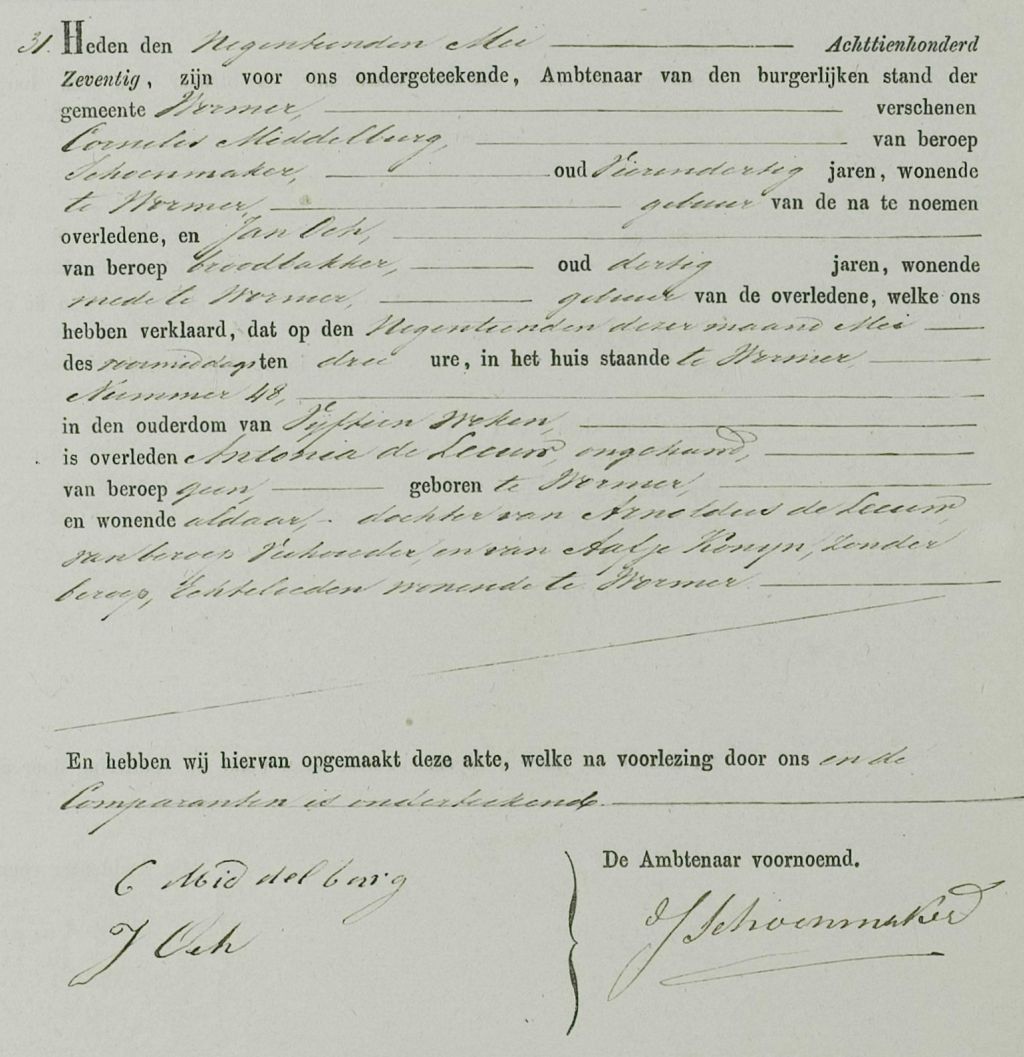 31. Heden den Negentienden Mei Achttienhonderd
Zeventig, zijn voor ons ondergeteekende, Ambtenaar van den burgerlijken stand der
gemeente Wormer, verschenen
Cornelis Middelburg, van beroep
Schoenmaker, oud Vierendertig jaren, wonende
te Wormer, gebuur van de na te noemen
overledene, en Jan Och,
van beroep broodbakker, oud dertig jaren, wonende
mede te Wormer, gebuur van de overledene, welke ons
hebben verklaard, dat op den Negentienden dezer maand Mei
des voormiddags ten drie ure, in het huis staande te Wormer,
Nummer 48,
in den ouderdom van Vijftien Weken,
is overleden Antonia de Leeuw, ongehuwd,
van beroep geen, geboren te Wormer,
en wonende aldaar, dochter van Arnoldus de Leeuw,
van beroep Veehouder, en van Aafje Konijn, zonder
beroep, Echtelieden wonende te Wormer.
En hebben wij hiervan opgemaakt deze akte, welke na voorlezing door ons en de
Comparanten is onderteekend.
De Ambtenaar voornoemd.
C Middelburg
J Och
J Schoenmaker